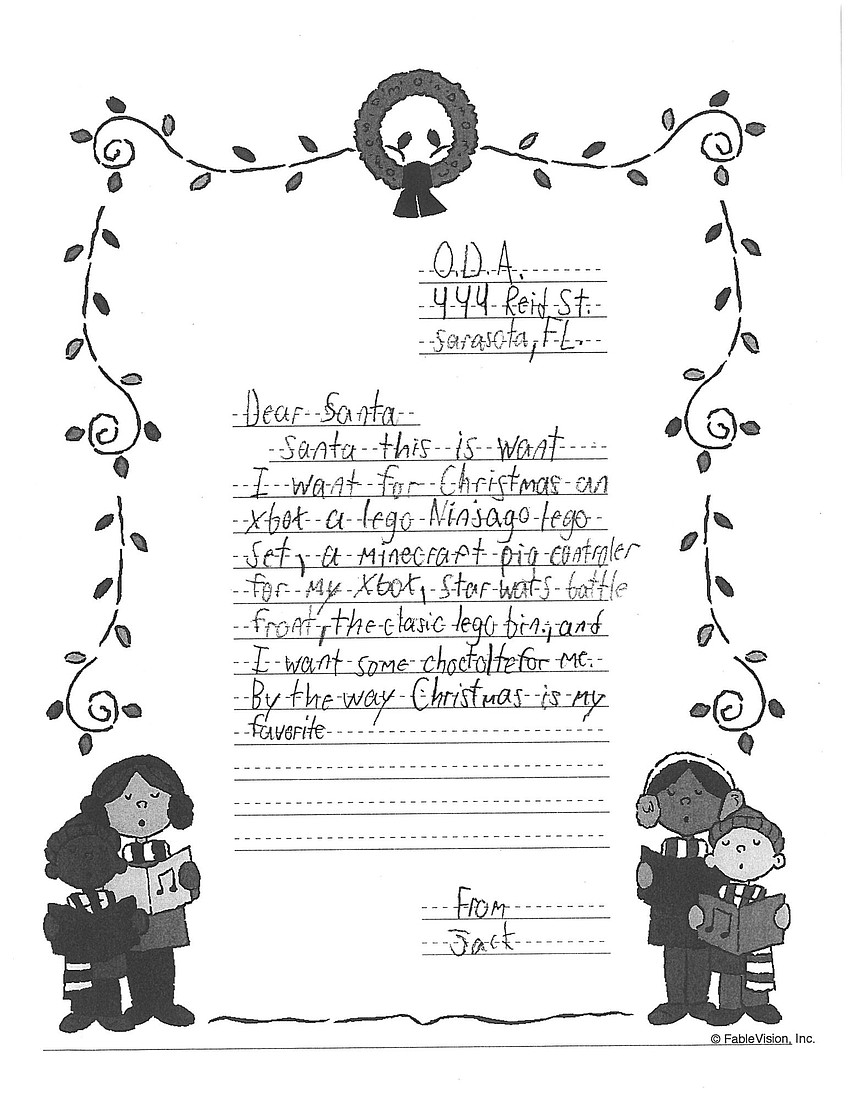 O.D.A.
444 Reid St.
Sarasota, FL.
Dear Santa
Santa this is want
I want for Christmas an
xbox a lego Ninjago lego
set, a minecraft pig controler
for my Xbox, Star wars battle
front, the clasic lego bin, and
I want some choctolte for me.
By the way Christmas is my
favorite
From
Jack
© FableVision, Inc.